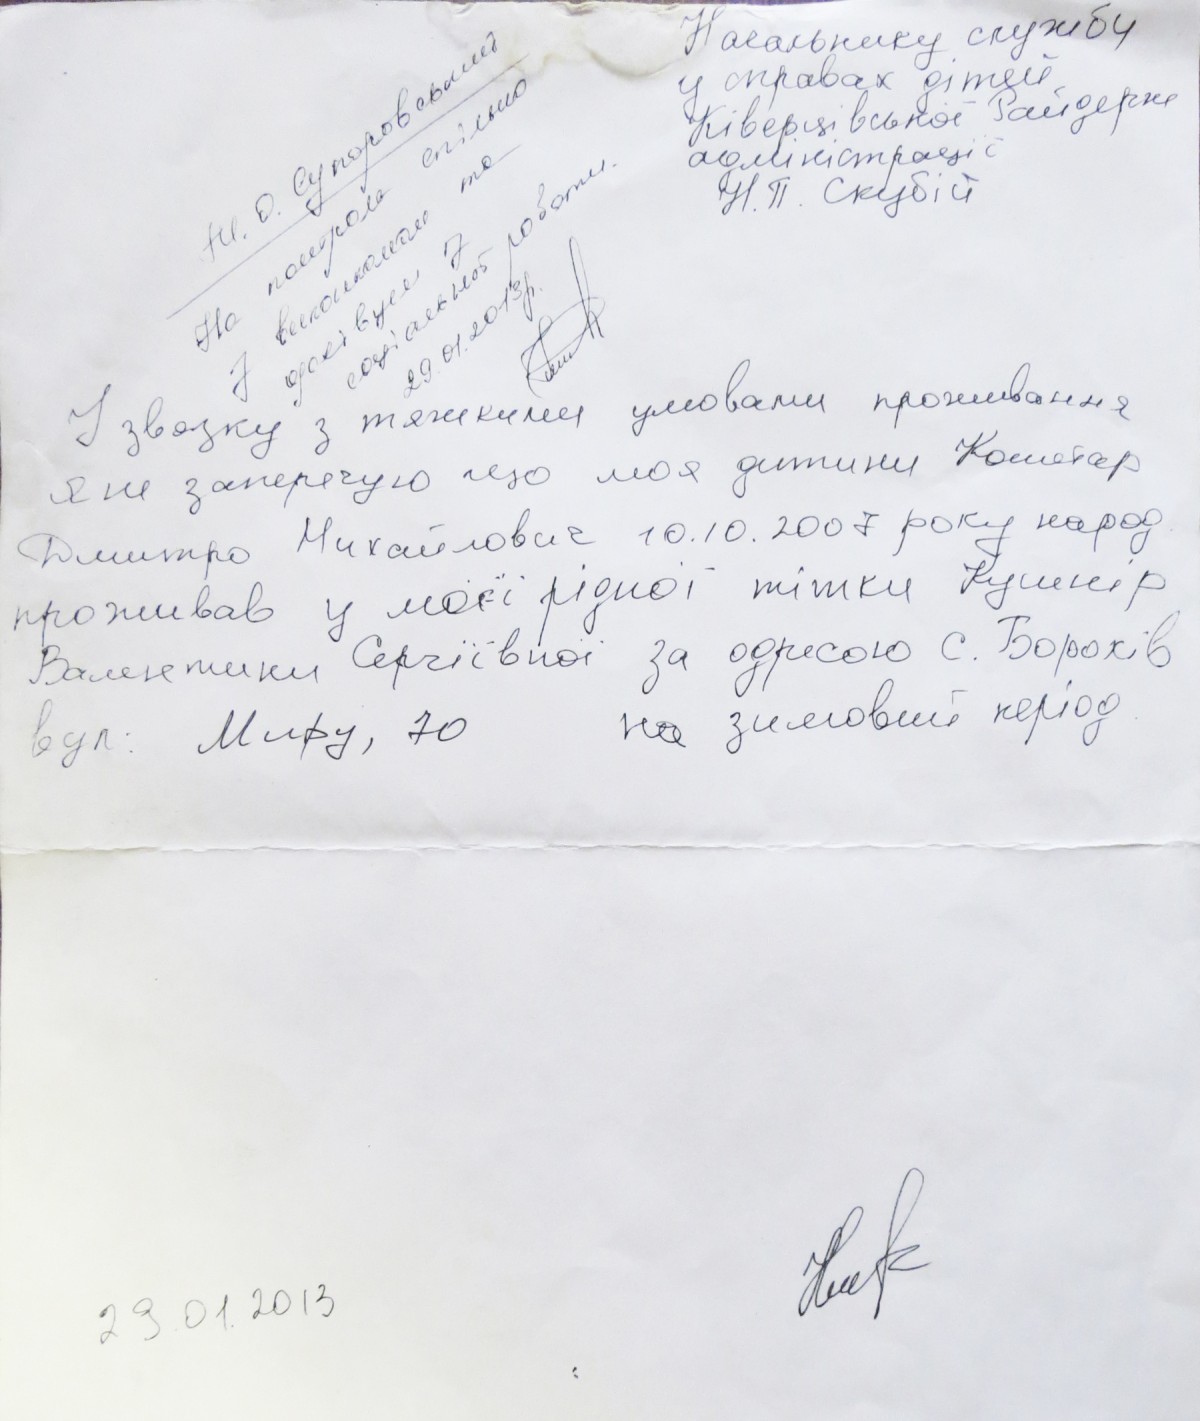 Начальнику служби
у справах дітей
Ківерцівської Райдерж
адміністрації
Н.П. Скубій
Ю. О. Супоровській
На контроль спільно
з виконкомом та
фахівцем з
соціальної роботи.
29.01.2013р.
У звязку з тяжкими умовами проживання
я не заперечую що моя дитини
Дмитро Михайлович 10.10.2007 року народ.
проживав у моєї рідної тітки Кушнір
Валентини Сергіївної за адресою с. Борохів
вул: Миру, 70 на зимовий період.
29.01.2013